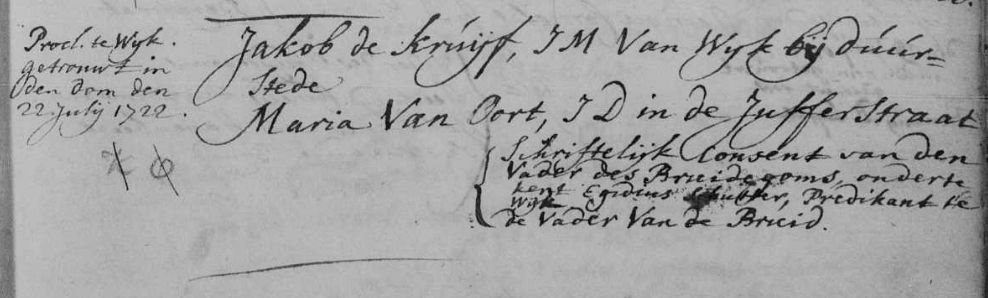 Procl. te Wyk.
getrouwt in
den dom den
22 Julij 1722.
Jakob de Kruÿff, JM Van Wyk bij duúr=
Stede
Maria Van Oort, JD in de Jufferstraat
Schriftelijk Consent van den
Vader des Bruidegoms, onderte
kent Egidius Schutter, Predikant te
Wyk
de Vader Van de Bruid.